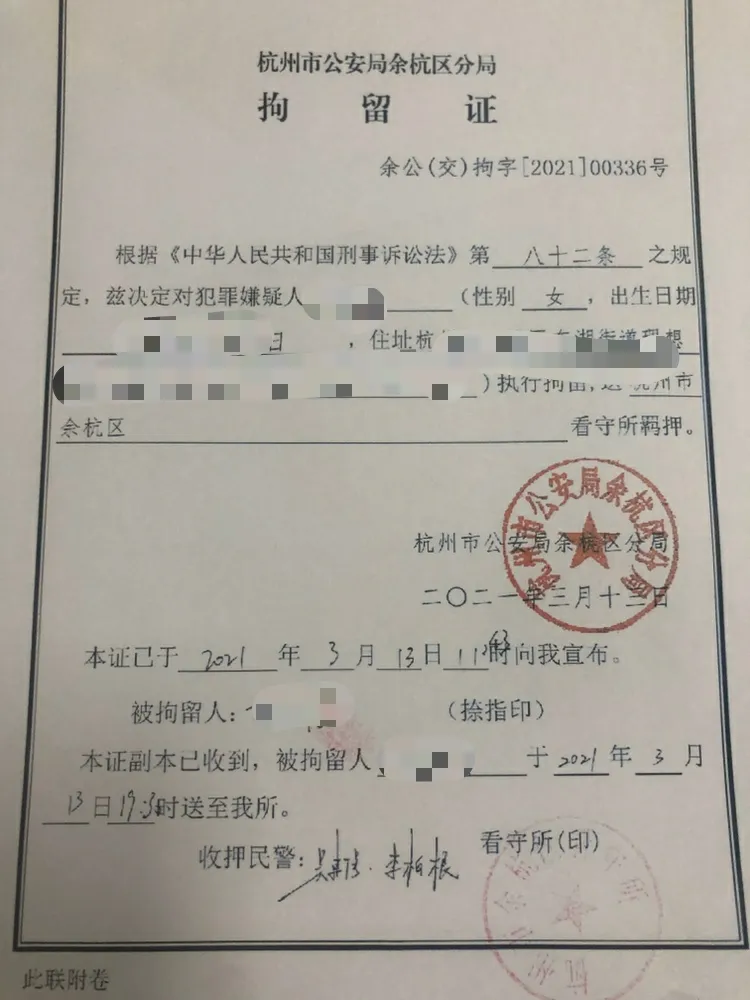 杭州市公安局余杭区分局
拘 留 证
余公(交)拘字[2021]00336号
根据《中华人民共和国刑事诉讼法》第 八十二条 之规
定，兹决定对犯罪嫌疑人 （性别 女 ，出生日期
日 ，住址杭 街道理想
）执行拘留，送 杭州市
余杭区 看守所羁押。
杭州市公安局余杭区分局
杭州市公安局余杭区分局
二〇二一年三月十三日
本证已于 2021 年 3 月 13 日 11 时向我宣布。
被拘留人： （捺指印）
本证副本已收到，被拘留人 于 2021 年 3 月
13 日 时送至我所。
收押民警： 李柏根 看守所(印)
此联附卷